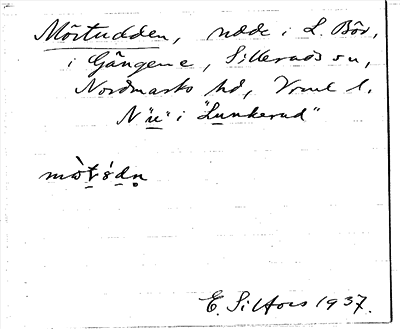 Mörtudden, udde i L. Bör,
i Gängene, Silleruds sn,
Nordmarks hd, Vrml l.
N "u" i "Lunkerud"
mò̀t́s̀dṇ
E. Silfors 1937.